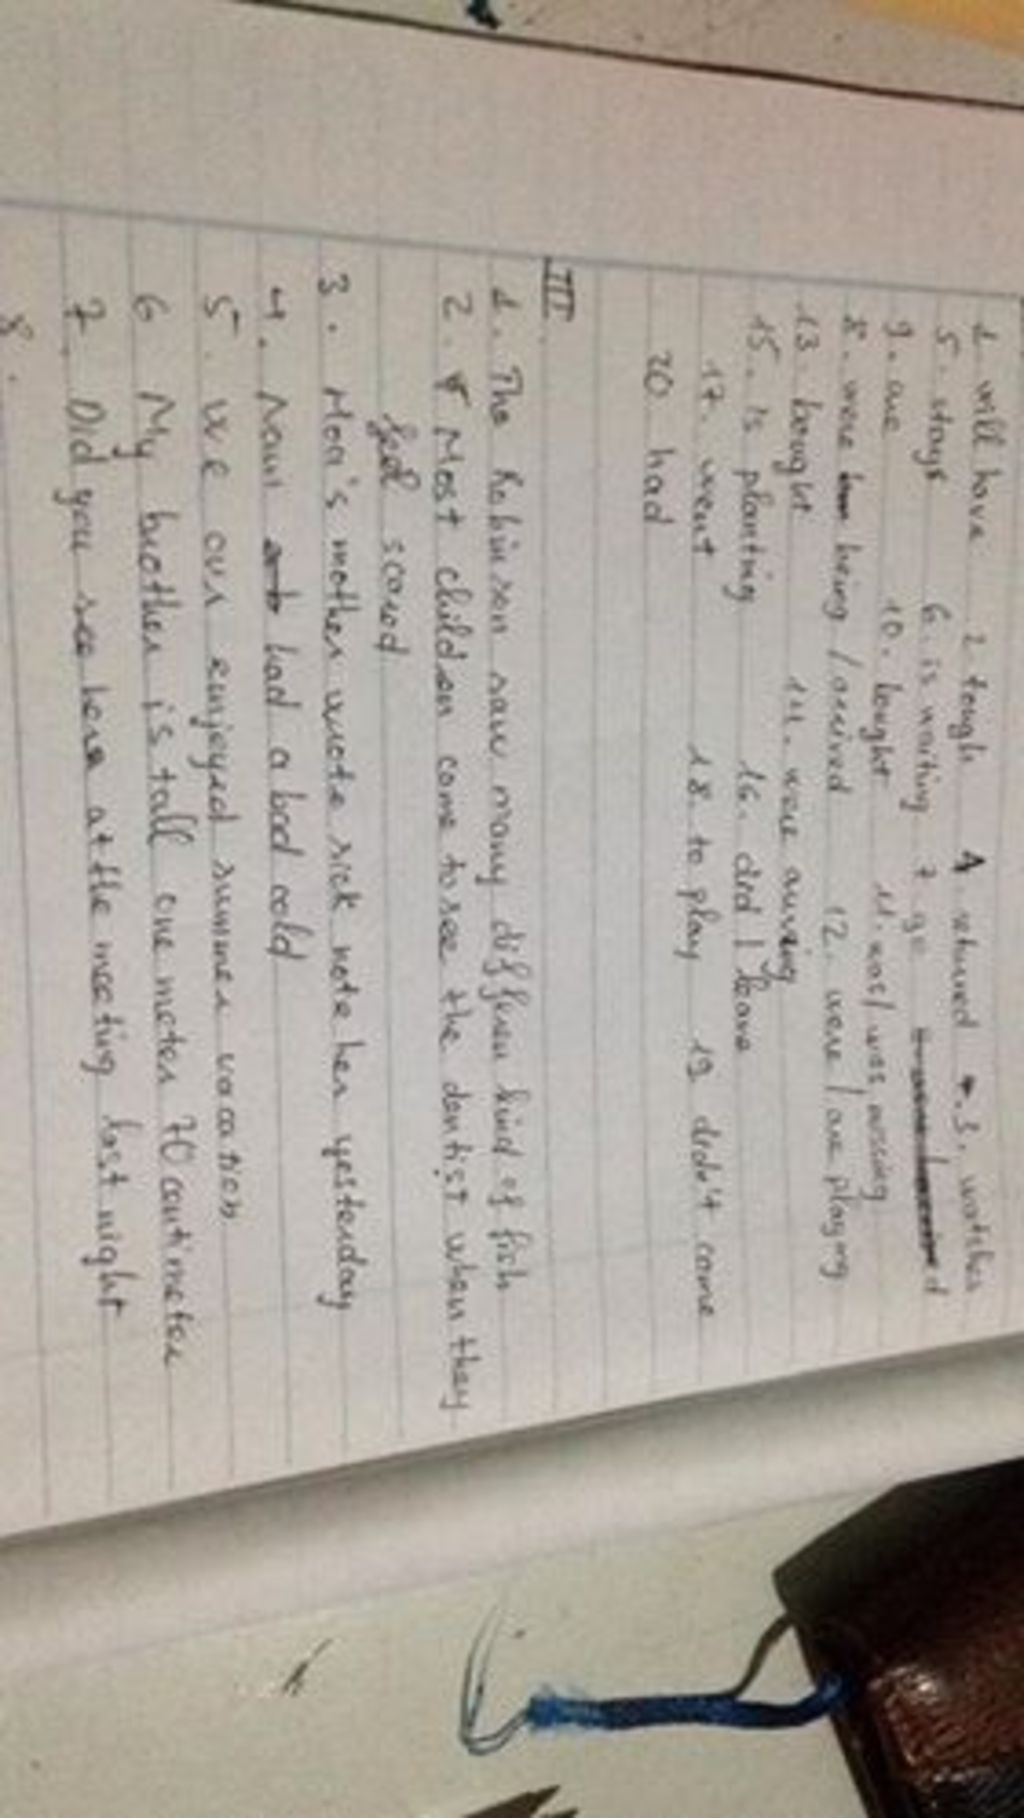 1 will have 2. tough 4 returned 3. watches
5. stays 6. is waiting 7 go
9. are 10. bought 11. was/ was
8. were being / arrived 12. were / are playing
13. bought 14. were
15. is planting 16. did / leave
17. went 18. to play 19 didn't come
20 had
III
1. The Robinson saw many differen kind of fish
2. Most children come to see the dentist when they
scared
3. Hoa's mother wrote sick note her yesterday
4. Nam had a bad cold
5. we our enjoyed summer vacation
6 My brother is tall one meter 70 centimeter
7. Did you see here at the meeting last night
8.